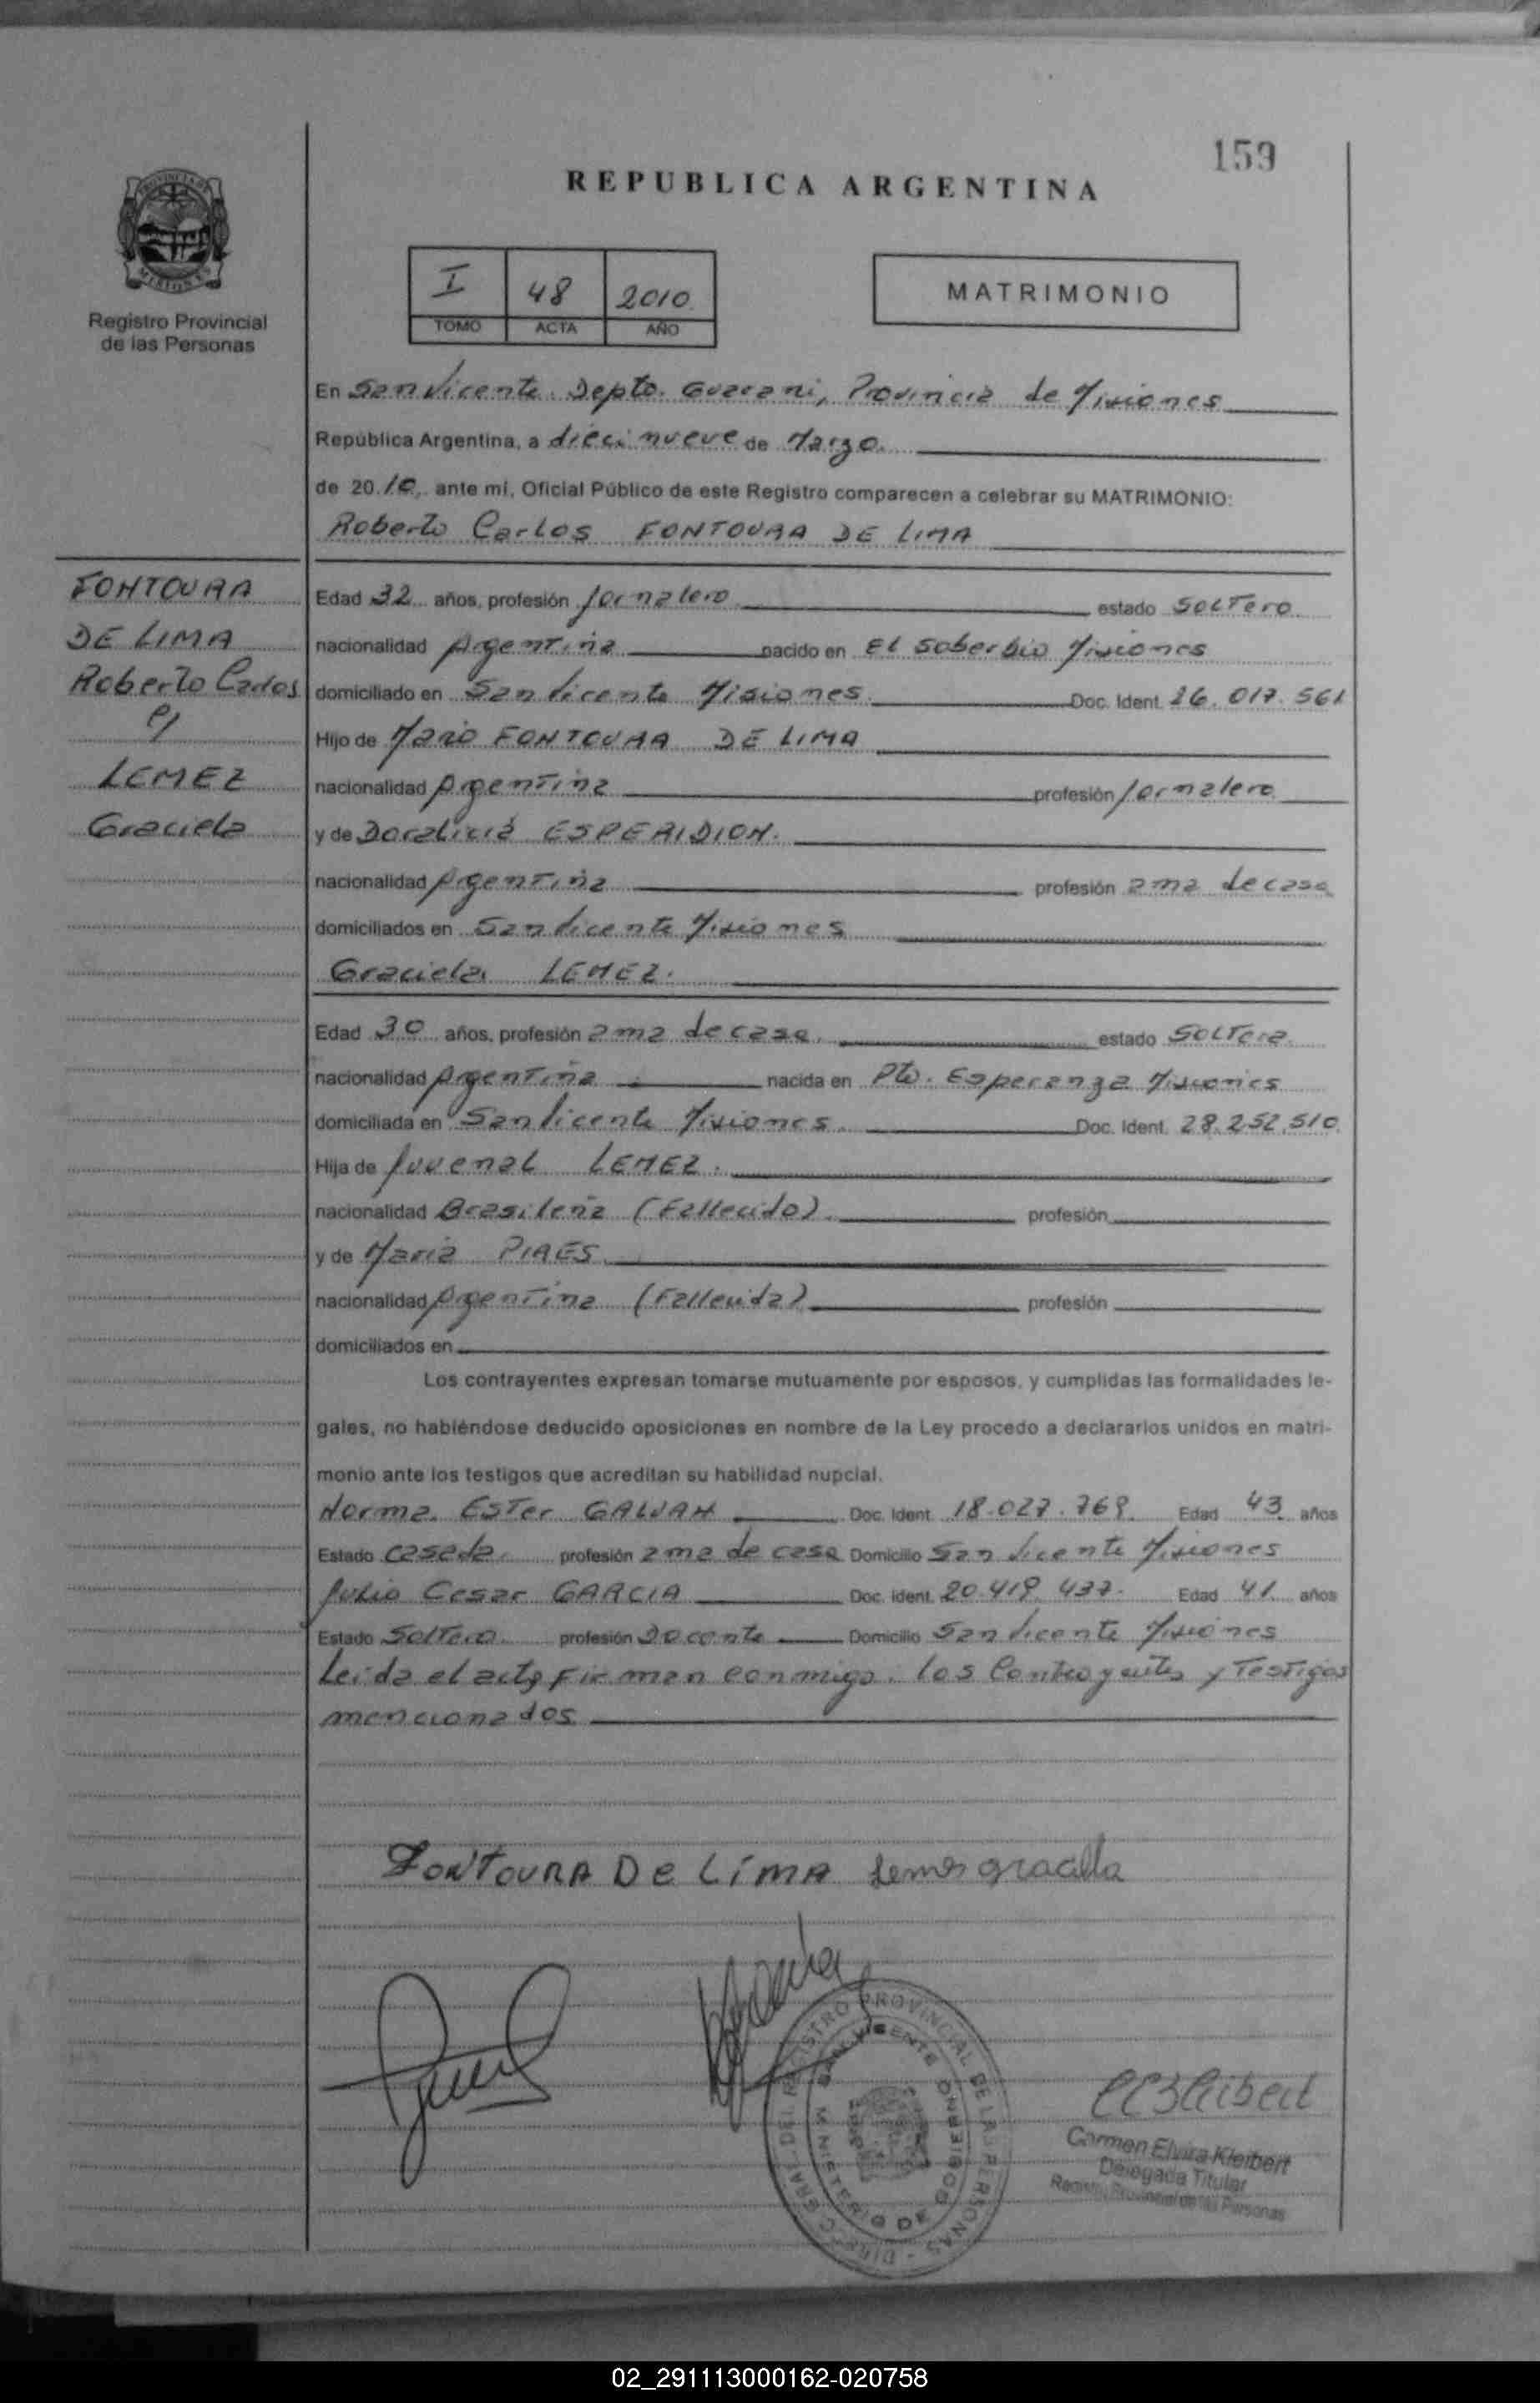 159
REPUBLICA ARGENTINA
PROVINCIA DE
MISIONES
Registro Provincial
de las Personas
I 48 2010
TOMO ACTA AÑO
MATRIMONIO
En San Vicente. Depto. Guarani, Provincia de Misiones
República Argentina, a dieci nueve de Marzo.
de 20.10, ante mí, Oficial Público de este Registro comparecen a celebrar su MATRIMONIO:
Roberto Carlos FONTOURA DE LIMA
FONTOURA
DE LIMA
Roberto Carlos
LEMEZ
Graciela
Edad 32 años, profesión Jornalero estado Soltero
nacionalidad Argentina nacido en El Soberbio Misiones
domiciliado en San Vicente Misiones Doc. Ident. 26.017.561
Hijo de Mario FONTOURA DE LIMA
nacionalidad Argentina profesión Jornalero
y de Doralicia ESPERIDION.
nacionalidad Argentina profesión ama de casa
domiciliados en San Vicente Misiones
Graciela LEMEZ.
Edad 30 años, profesión ama de casa. estado Soltera
nacionalidad Argentina nacida en Pto. Esperanza Misiones
domiciliada en San Vicente Misiones. Doc. Ident. 28.252.510
Hija de Juvenal LEMEZ.
nacionalidad Brasileña (Fallecido) profesión
y de Maria PIRES
nacionalidad Argentina (Fallecida) profesión
domiciliados en
Los contrayentes expresan tomarse mutuamente por esposos, y cumplidas las formalidades le-
gales, no habiéndose deducido oposiciones en nombre de la Ley procedo a declararlos unidos en matri-
monio ante los testigos que acreditan su habilidad nupcial.
Norma Ester GALVAN Doc. Ident. 18.027.769. Edad 43 años
Estado Casada profesión ama de casa Domicilio San Vicente Misiones
Julio Cesar GARCIA Doc. Ident. 20.419.437. Edad 41 años
Estado Soltero profesión Docente Domicilio San Vicente Misiones
Leida el acta firman conmigo. los Contrayentes y Testigos
mencionados
FONTOURA De Lima Lemes graciela
DIRECC. GRAL. DEL REGISTRO PROVINCIAL DE LAS PERSONAS
SAN VICENTE
MINISTERIO DE GOBIERNO
Carmen Elvira Kleibert
Delegada Titular
Registro Provincial de las Personas
02_291113000162-020758